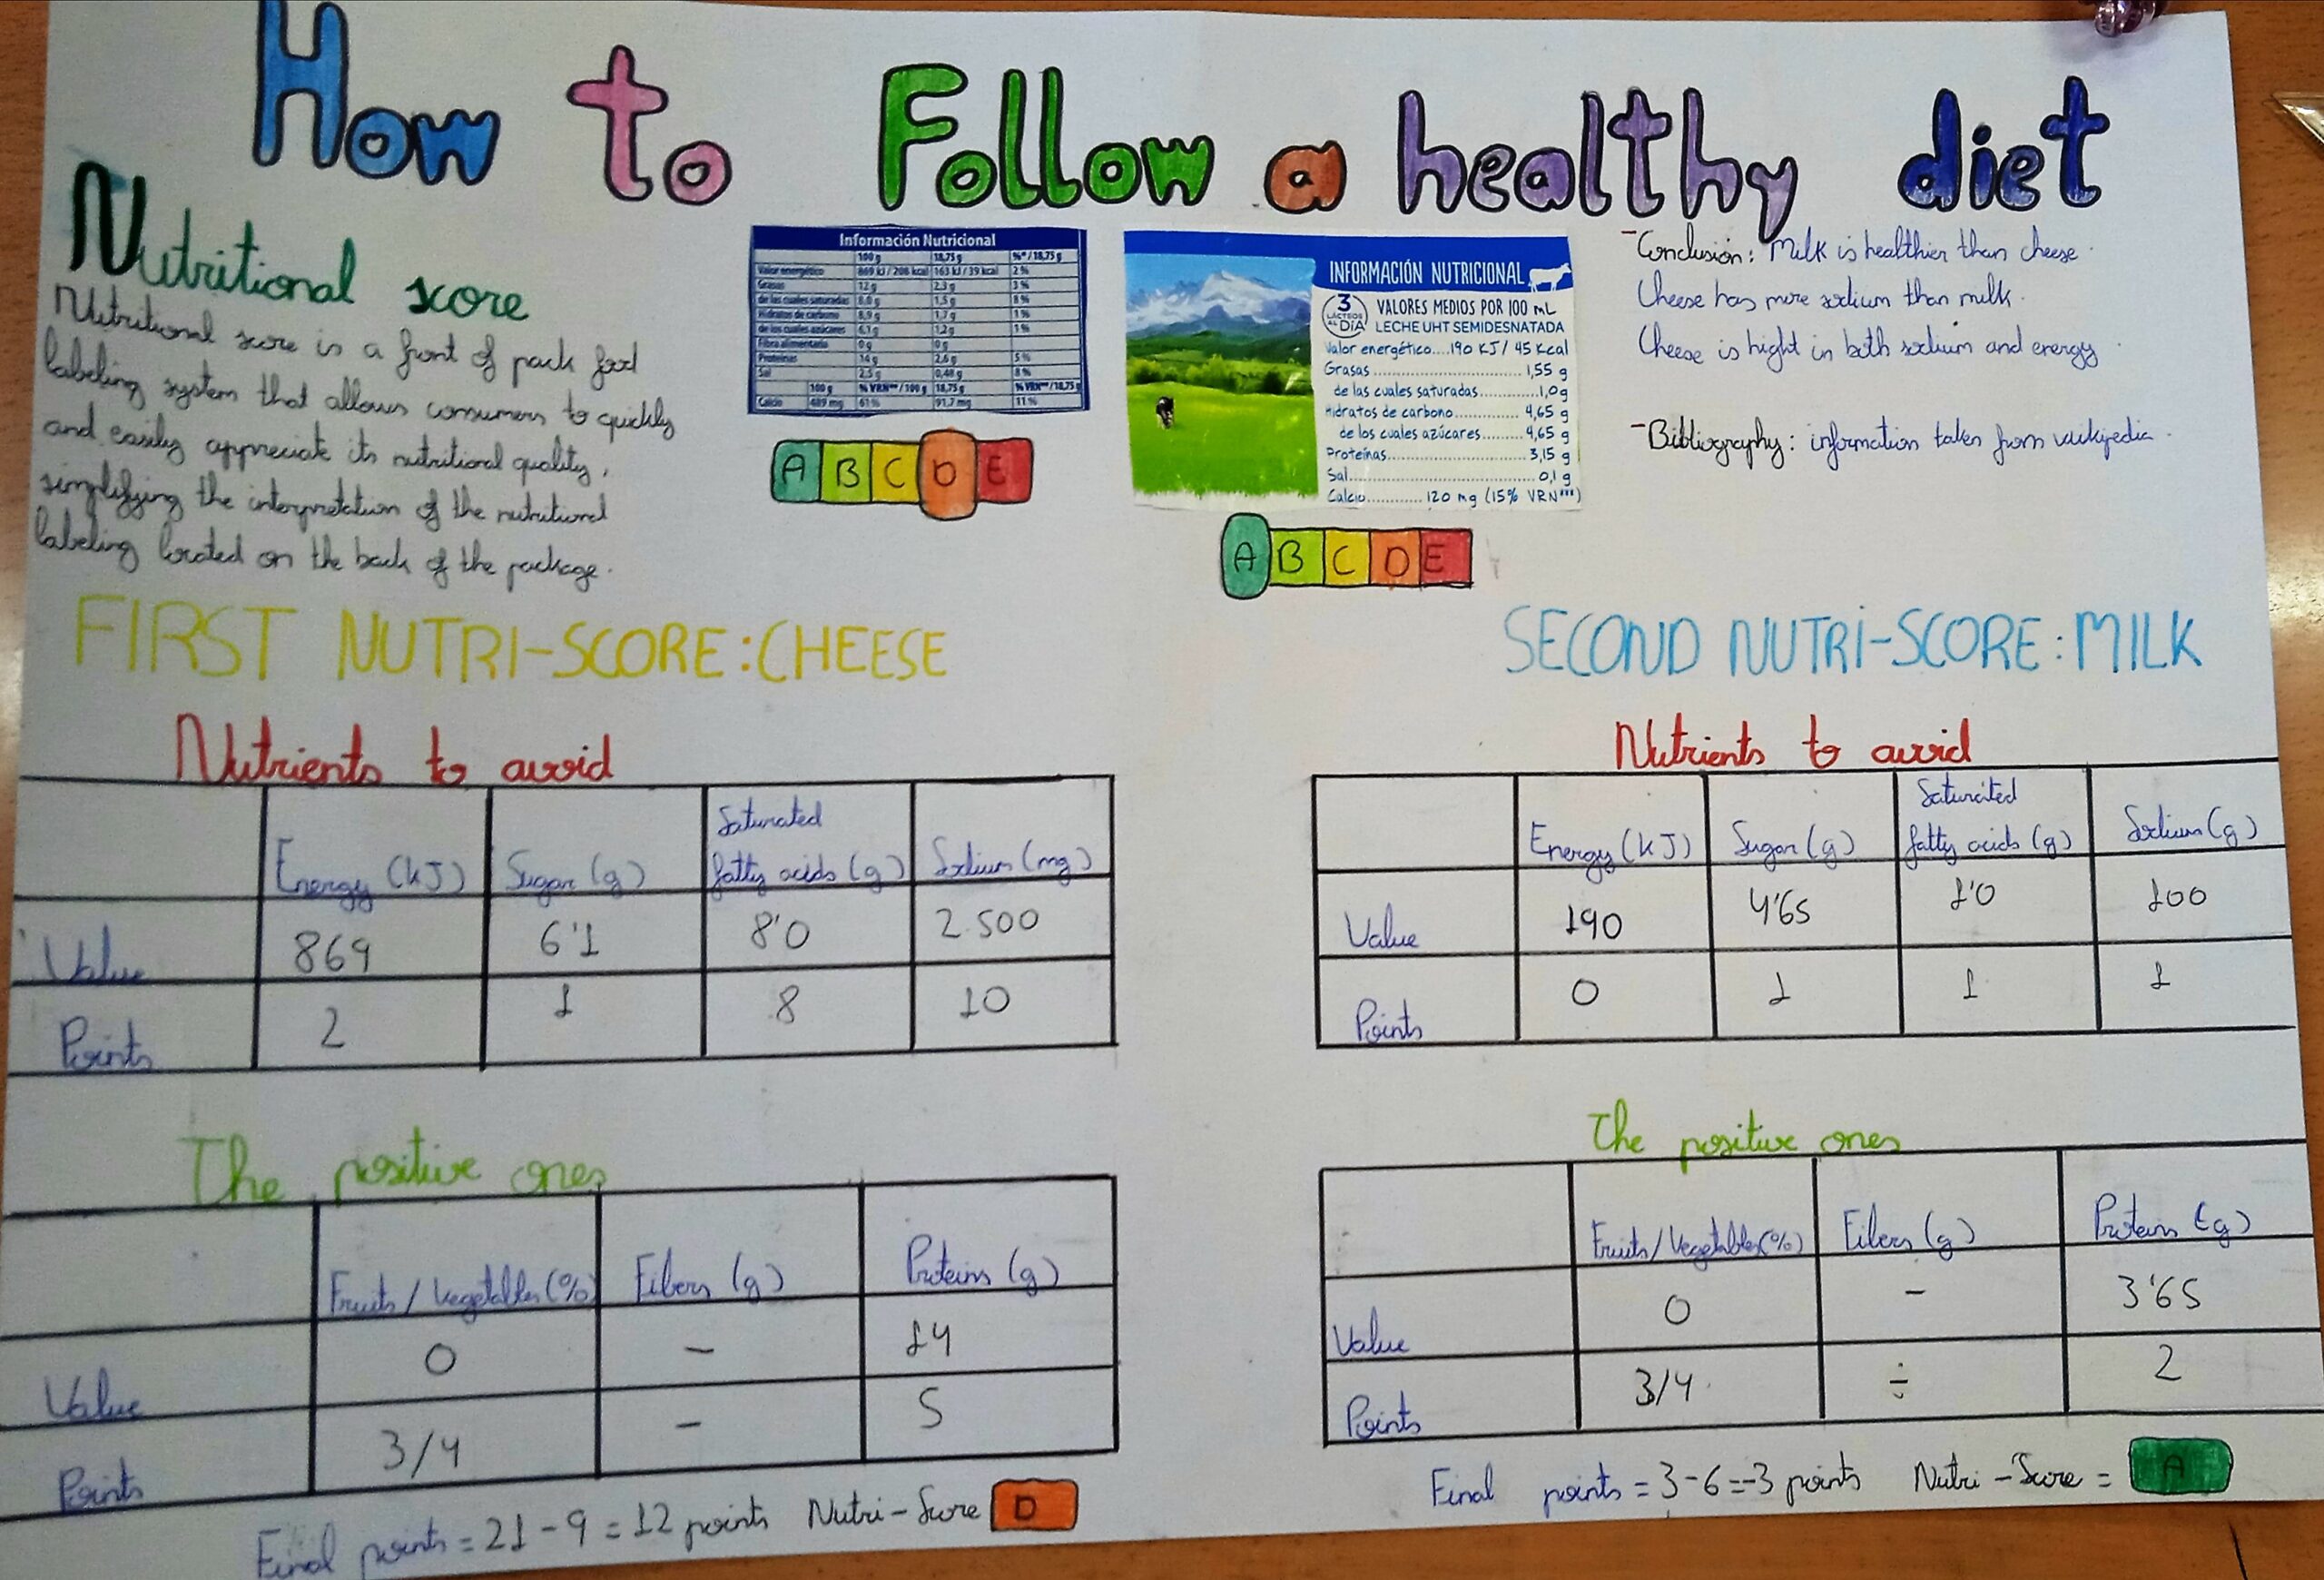 How to Follow a healthy diet
Nutritional score
Nutritional score is a front of pack food
labeling system that allows consumers to quickly
and easily appreciate its nutritional quality,
simplifying the interpretation of the nutritional
labeling located on the back of the package.
Información Nutricional
100 g 18,75 g %*/18,75 g
Valor energético 869 kJ / 208 kcal 163 kJ / 39 kcal 2%
Grasas 12 g 2,3 g 3%
de las cuales saturadas 8,0 g 1,5 g 8%
Hidratos de carbono 8,9 g 1,7 g 1%
de los cuales azúcares 6,1 g 1,2 g 1%
Fibra alimentaria 0 g 0 g
Proteínas 14 g 2,6 g 5%
Sal 2,5 g 0,48 g 8%
100 g % VRN***/100 g 18,75 g % VRN***/18,75 g
Calcio 489 mg 61% 91,7 mg 11%
A B C D E
INFORMACIÓN NUTRICIONAL
3 LÁCTEOS AL DÍA
VALORES MEDIOS POR 100 mL
LECHE UHT SEMIDESNATADA
Valor energético....190 KJ/ 45 Kcal
Grasas 1,55 g
de las cuales saturadas 1,0 g
Hidratos de carbono 4,65 g
de los cuales azúcares 4,65 g
Proteínas 3,15 g
Sal 0,1 g
Calcio 120 mg (15% VRN***)
A B C D E
-Conclusion: Milk is healthier than cheese.
Cheese has more sodium than milk.
Cheese is hight in both sodium and energy.
-Bibliography: information taken from wikipedia.
FIRST NUTRI-SCORE:CHEESE
Nutrients to avoid
Energy (kJ) Sugar (g) Saturated fatty acids (g) Sodium (mg)
Value 869 6'1 8'0 2.500
Points 2 1 8 10
The positive ones
Fruits/Vegetables(%) Fibers (g) Proteins (g)
Value 0 - 14
Points 3/4 - 5
Final points = 21 - 9 = 12 points Nutri-Score D
SECOND NUTRI-SCORE:MILK
Nutrients to avoid
Energy (kJ) Sugar (g) Saturated fatty acids (g) Sodium (g)
Value 190 4'65 1'0 100
Points 0 1 1 1
The positive ones
Fruits/Vegetables(%) Fibers (g) Proteins (g)
Value 0 - 3'65
Points 3/4 ÷ 2
Final points = 3 - 6 = -3 points Nutri-Score = A